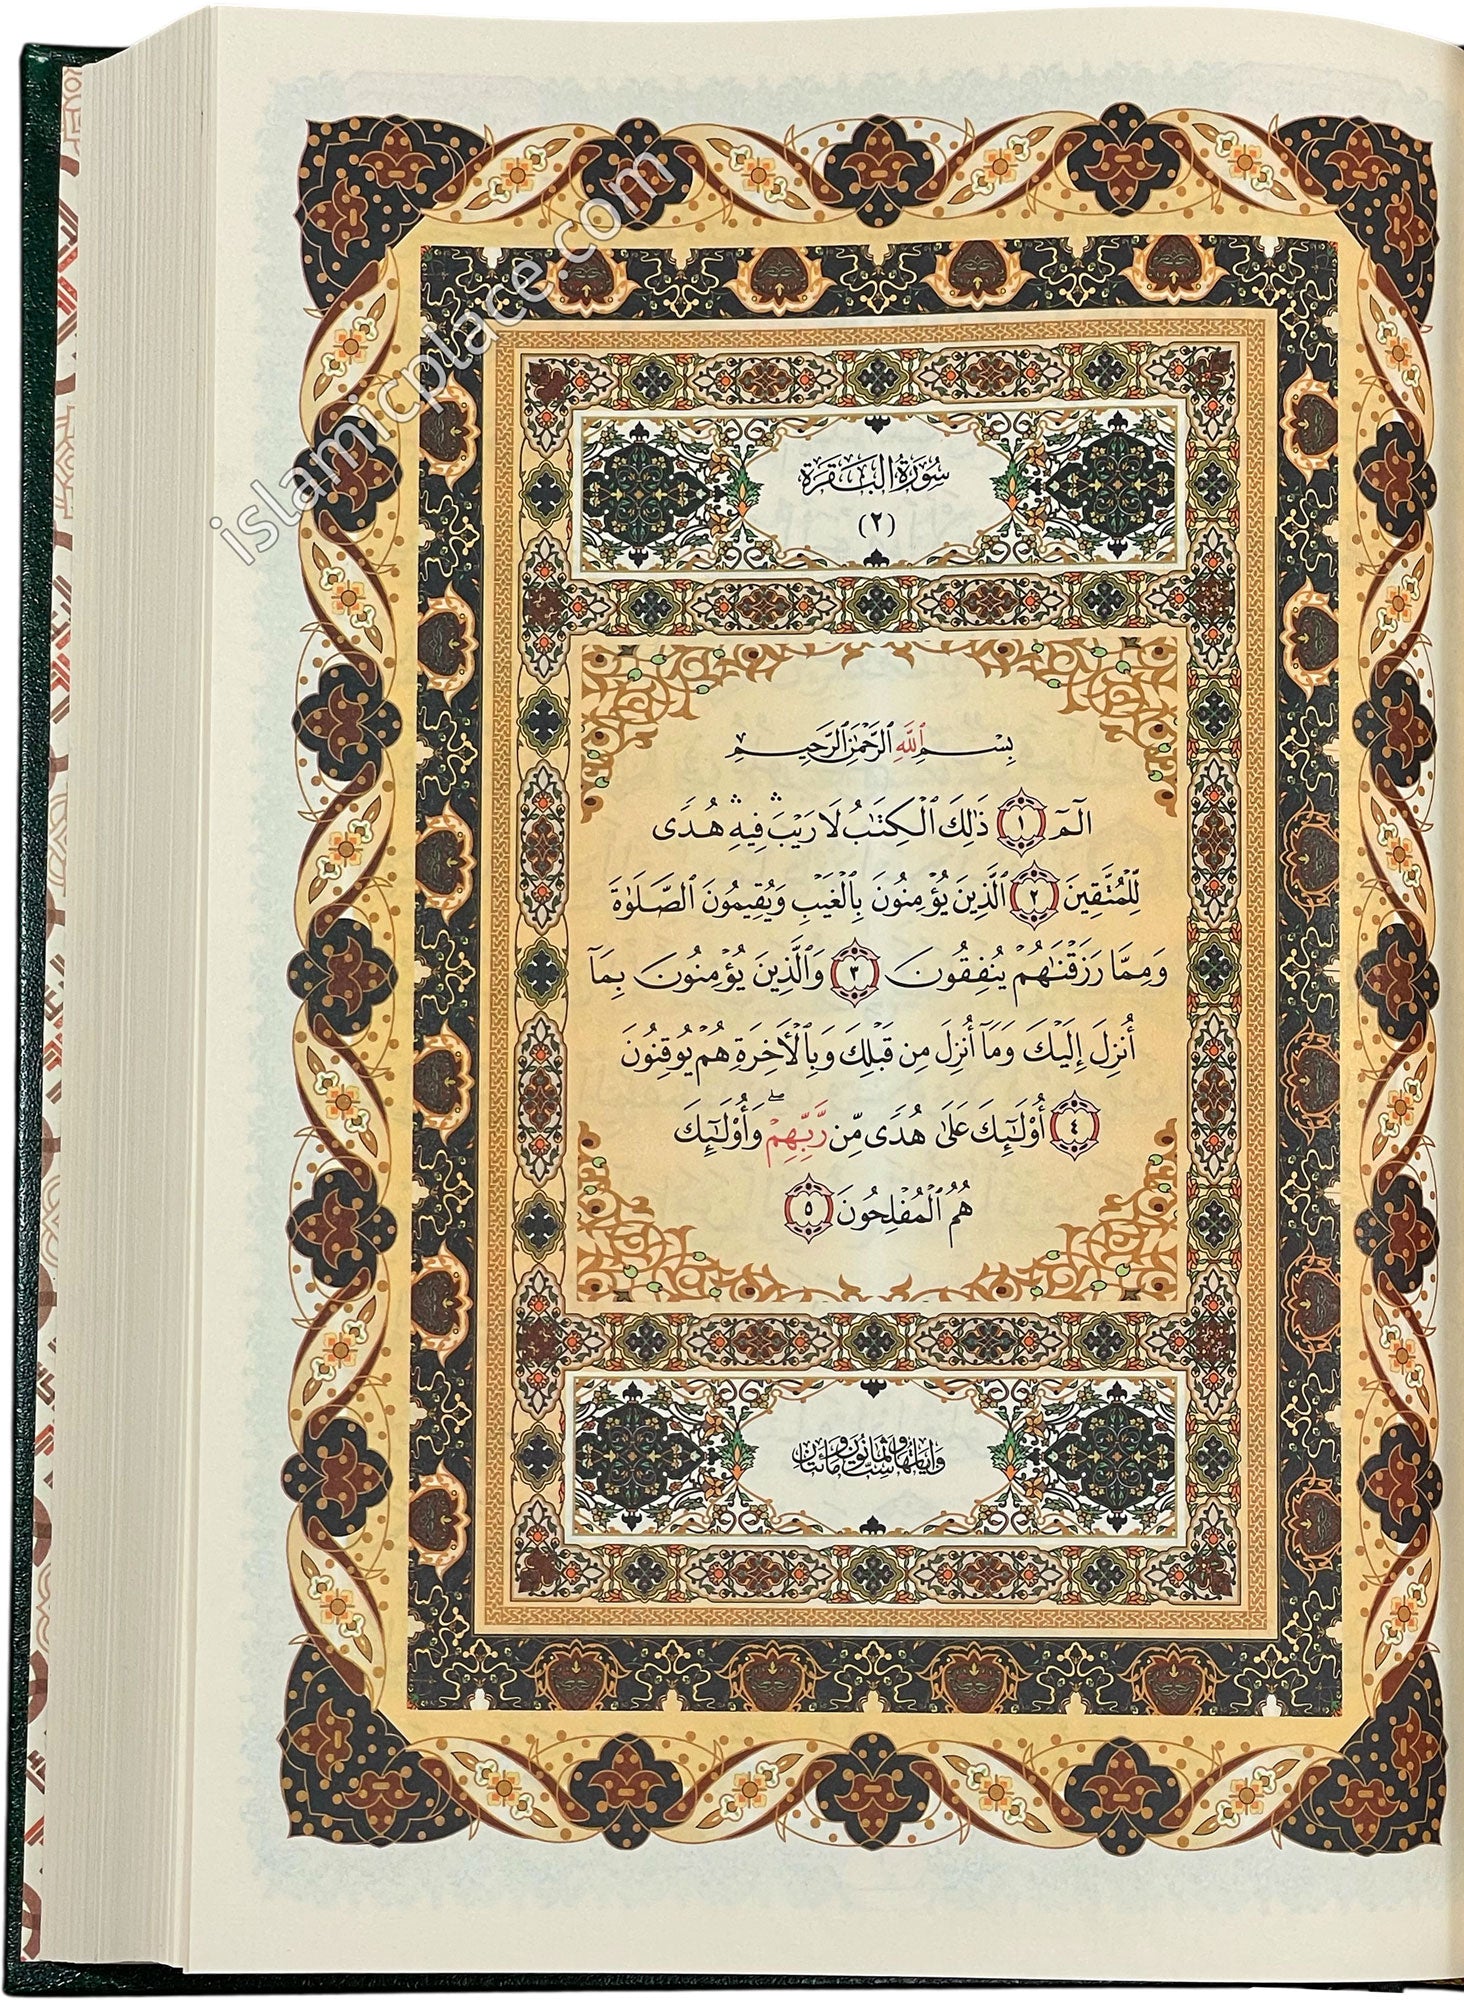 سُورَةُ البَقَرَةِ
(٢)
بِسْمِ ٱللَّهِ ٱلرَّحْمَٰنِ ٱلرَّحِيمِ
الٓمٓ ١ ذَٰلِكَ ٱلْكِتَٰبُ لَا رَيْبَ ۛ فِيهِ ۛ هُدًى
لِّلْمُتَّقِينَ ٢ ٱلَّذِينَ يُؤْمِنُونَ بِٱلْغَيْبِ وَيُقِيمُونَ ٱلصَّلَوٰةَ
وَمِمَّا رَزَقْنَٰهُمْ يُنفِقُونَ ٣ وَٱلَّذِينَ يُؤْمِنُونَ بِمَآ
أُنزِلَ إِلَيْكَ وَمَآ أُنزِلَ مِن قَبْلِكَ وَبِٱلْأَخِرَةِ هُمْ يُوقِنُونَ
٤ أُوْلَٰٓئِكَ عَلَىٰ هُدًى مِّن رَّبِّهِمْ ۖ وَأُوْلَٰٓئِكَ
هُمُ ٱلْمُفْلِحُونَ ٥
وَآيَاتُهَا سِتٌّ وَثَمَانُونَ وَمَائَتَانِ
islamicplace.com